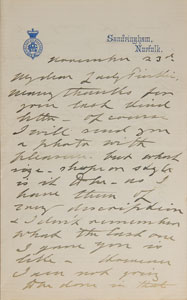 Sandringham,
Norfolk.
November 23rd
My dear Lady
many thanks for
your last kind
letter - of course
I will send you
a photo with
pleasure but what
size - shape or style
is it to be - as I
have them of
every description
& I don't remember
what the last one
I gave you is
like -
I am not going
to be done in that